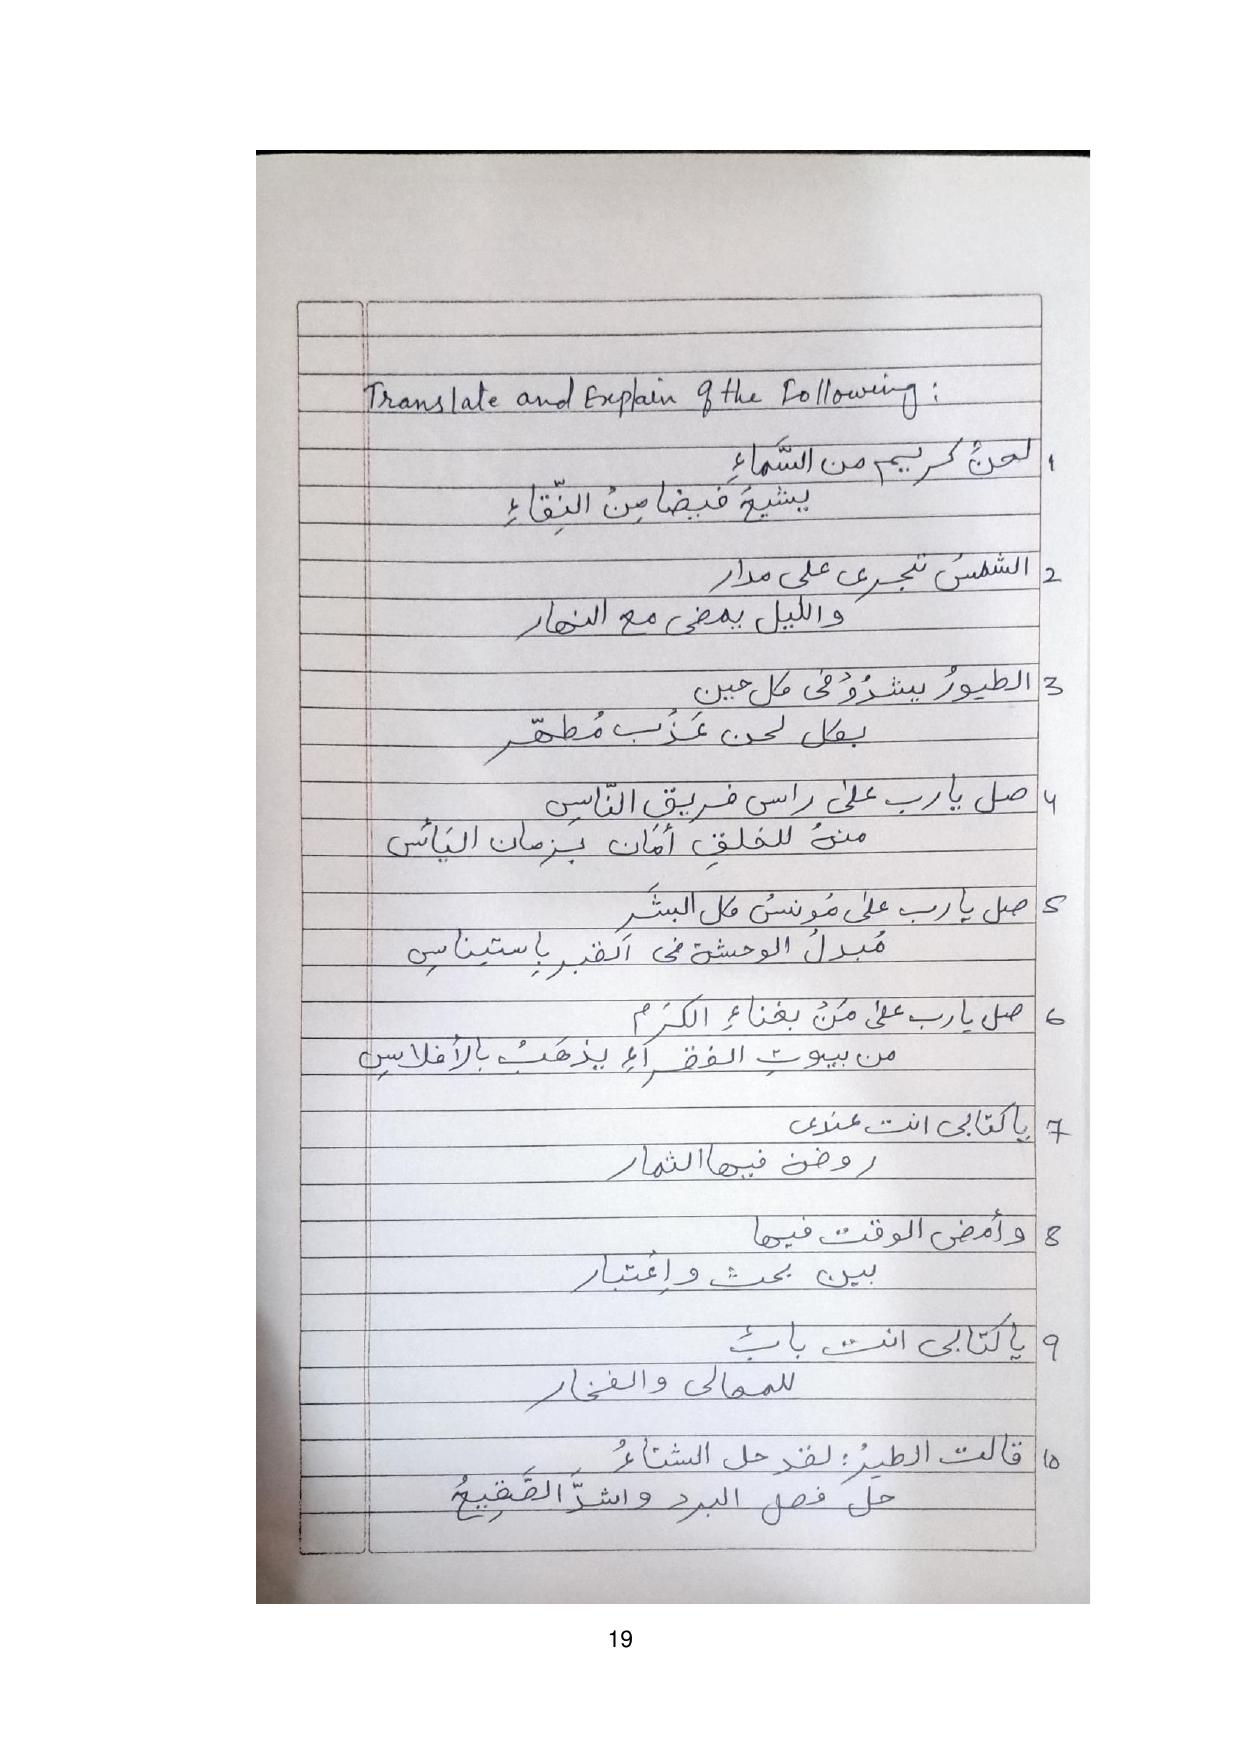 Translate and Explain of the Following:
1 لحنٌ كريم من السَّماءِ
يشيعُ فيضا مِنُ النِّقاءِ
2 الشمسُ تجرى على مدار
والليل يمضى مع النهار
3 الطيورُ يشدُوْ فى كل حين
بكل لحن عَذُب مُطهّر
4 صل يارب علىٰ راس فريق النّاسِ
منهُ للخلقِ أمَان بزمان اليَأسِ
5 صل يارب علىٰ مُونسُ كل البشَر
مُبدلُ الوحشة فى القبر باستيناسِ
6 صل يارب علىٰ مَنُ بغناءِ الكرَم
من بيوتِ الفقراءِ يذهَبُ بالأفلاسِ
7 ياكتابى انت عندى
روضٌ فيها الثمار
8 وأمضى الوقت فيها
بين بحث واعُتبار
9 ياكتابى انت بابٌ
للمعالى والفخار
10 قالت الطيرُ: لقد حل الشتاءُ
حلَ فصل البرد واشدَّ الصَّقِيعُ
19